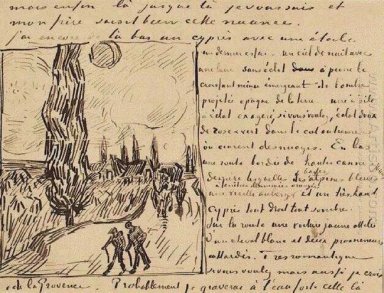 mais enfin là jusque là je voussais et
mon père saisit been cette nuance.
j'ai encore de là bas un cyprès avec une étoile
un dernier essai - un ciel de nuit avec
une lune sans éclat à peine le
croissant mince émergeant de l'ombre
projetée opaque de la terre - une étoile
à éclat exagéré, si vous voulez, éclat doux
de rose & vert dans le ciel outremer
où courent des nuages. En bas
une route bordée de hautes cannes
derrière lesquelles les basses Alpines bleues
une vieille auberge et un très haut
cyprès tout droit tout sombre.
Sur la route une voiture jaune attelée
d'un cheval blanc et deux promeneurs
attardés. Très romantique
si vous voulez mais aussi je crois
de la Provence. Probablement je graverai à l'eau forte celle là